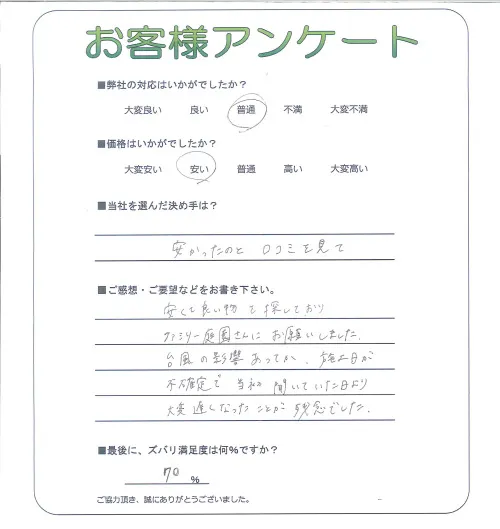 お客様アンケート
■弊社の対応はいかがでしたか？
大変良い 良い 普通 不満 大変不満
■価格はいかがでしたか？
大変安い 安い 普通 高い 大変高い
■当社を選んだ決め手は？
安かったのと 口コミを見て
■ご感想・ご要望などをお書き下さい。
安くて良い物で探しており
ファミリー庭園さんにお願いしました。
台風の影響あってか、施工日が
不確定で当初聞いていた日より
大変遅くなったことが残念でした。
■最後に、ズバリ満足度は何%ですか？
70 %
ご協力頂き、誠にありがとうございました。